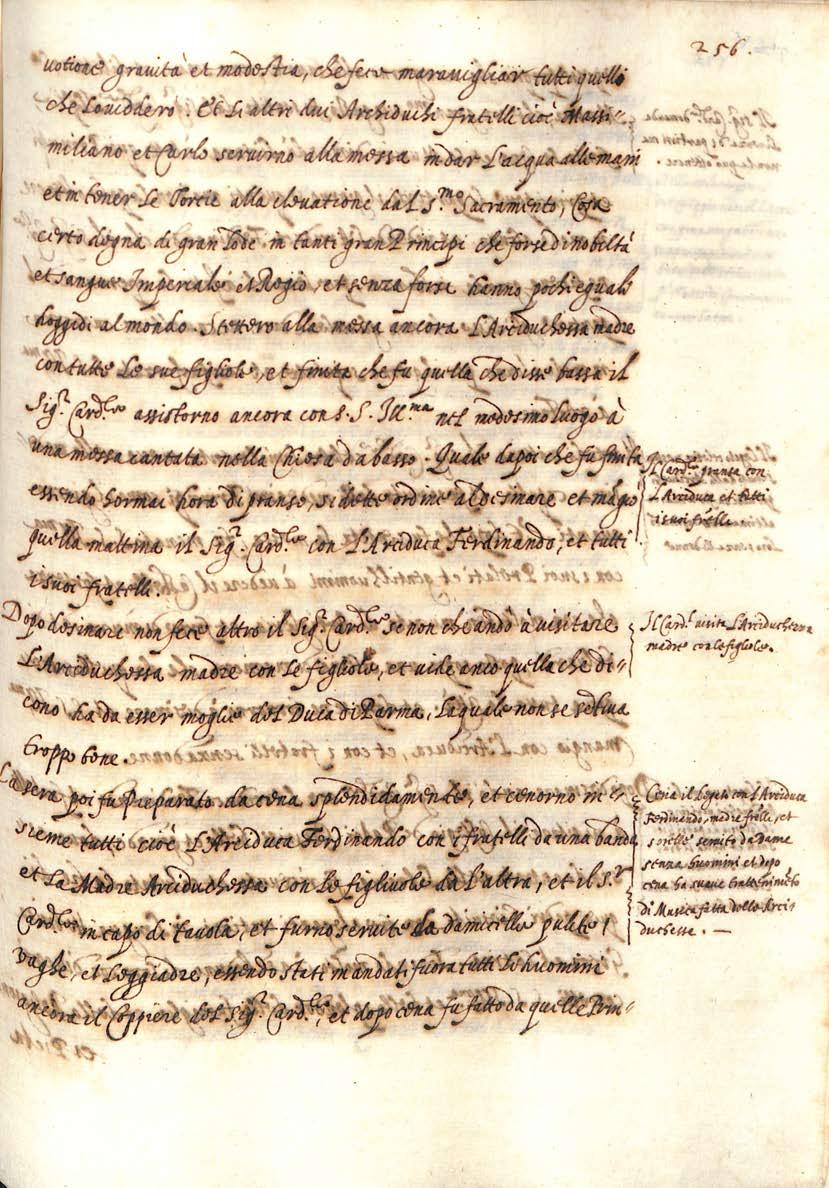 256.
votione gravità et modestia, che fece maravigliar tutti quelli
che Lo uiddero. Et Li altri dui Archiduchi fratelli cioè Massi=
miliano et Carlo servirno alla messa in dar L'acqua alle mani
et in tener Le Torcie alla elevatione dal S.mo Sacramento, Cosa
certo degna di gran lode in tanti gran Principi che forse di nobeltà
et sangue Imperiale et Regio, et senza forse hanno pochi eguali
hoggidi al mondo. Stettero alla messa ancora L'Arciduchessa madre
con tutte Le sue figliole, et finita che fu quella che disse bassa il
Sig.r Card.le assistorno ancora con S. S. Ill.ma nel medesimo luogo à
una messa cantata nella Chiesa da basso. Quale dapoi che fu finita
essendo hormai hora di pranso, si dette ordine al desinare et mangio
quella mattina il Sig.r Card.le con L'Arciduca Ferdinando, et tutti
i suoi fratelli.
Il Card.le pransa con
L'Arciduca et tutti
i suoi fr̃elli
Dopo desinare non fece altro il Sig.r Card.le se non che andò à visitare
L'Arciduchessa madre con Le figliole, et vide anco quella che di=
cono ha da esser moglie del Duca di Parma, Laquale non se sentiva
troppo bene.
Il Card.le visita L'Arciduchessa
madre con le figliole.
La sera poi fu preparato da cena splendidamente, et cenorno in=
sieme tutti cioè L'Arciduca Ferdinando con i fratelli da una banda
et La Madre Arciduchessa con Le figliuole da l'altra, et il S.r
Card.le in capo di tavola, et furno servite da damicelle pulite,
vaghe, et Leggiadre, essendo stati mandati fuora tutti Li huomini
ancora il Coppiere del Sig.r Card.le, et dopo cena fu fatto da quelle Prin=
Cena il Legato con L'Arciduca
Ferdinando, madre fr̃elli, et
sorelle servito da Dame
senza huomini et dopo
cena ha suave trattenimẽto
di Musica fatta dalle Arci
duchesse. —